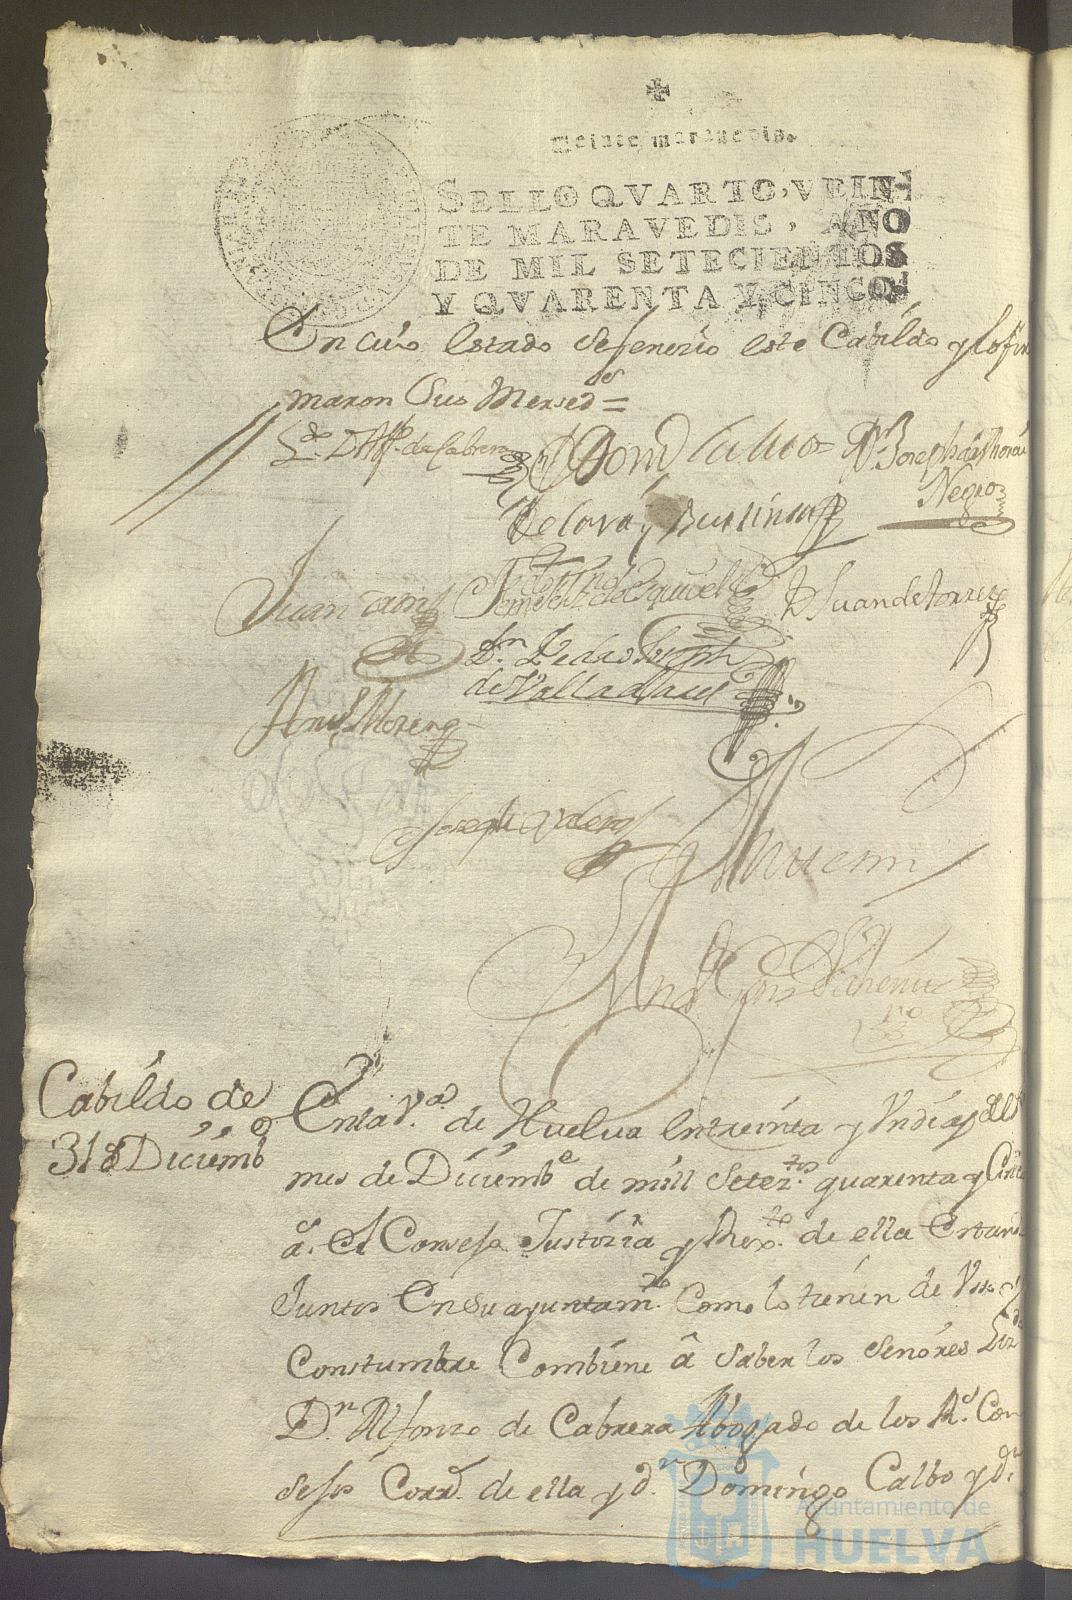 Veinte maravedis.
SELLO QVARTO, VEIN-
TE MARAVEDIS, AÑO
DE MIL SETECIENTOS
Y QVARENTA Y CINCO
En cuio Estado sefenezio este Cabildo y lo fir
maron Sus Mersedes =
Ldo. D. Alfo. de Cabrera Domo Calvo Dn. Joseph de Mora
Negro
Juan Dn. Juan de Torres
Dn. Pedro Joseph
de Valladares
Moreno
Joseph
Ante mi
Cabildo de
31 de Diciembe
En la Va. de Huelva Entreinta y Un dias del
mes de Diciembe de mill Seteztos. quarenta y Cinco
as. El Consejo Justizia y Rexto. de ella Estando
Juntos En su ayuntamto. Como lo tienen de Uso y
Constumbre Combiene â Saber los Señores Lizdo
Dn. Alfonzo de Cabrera Abogado de los Rs. Con
sejos Corrr. de ella y dn. Domingo Calbo y dn.
Ayuntamiento de
HUELVA